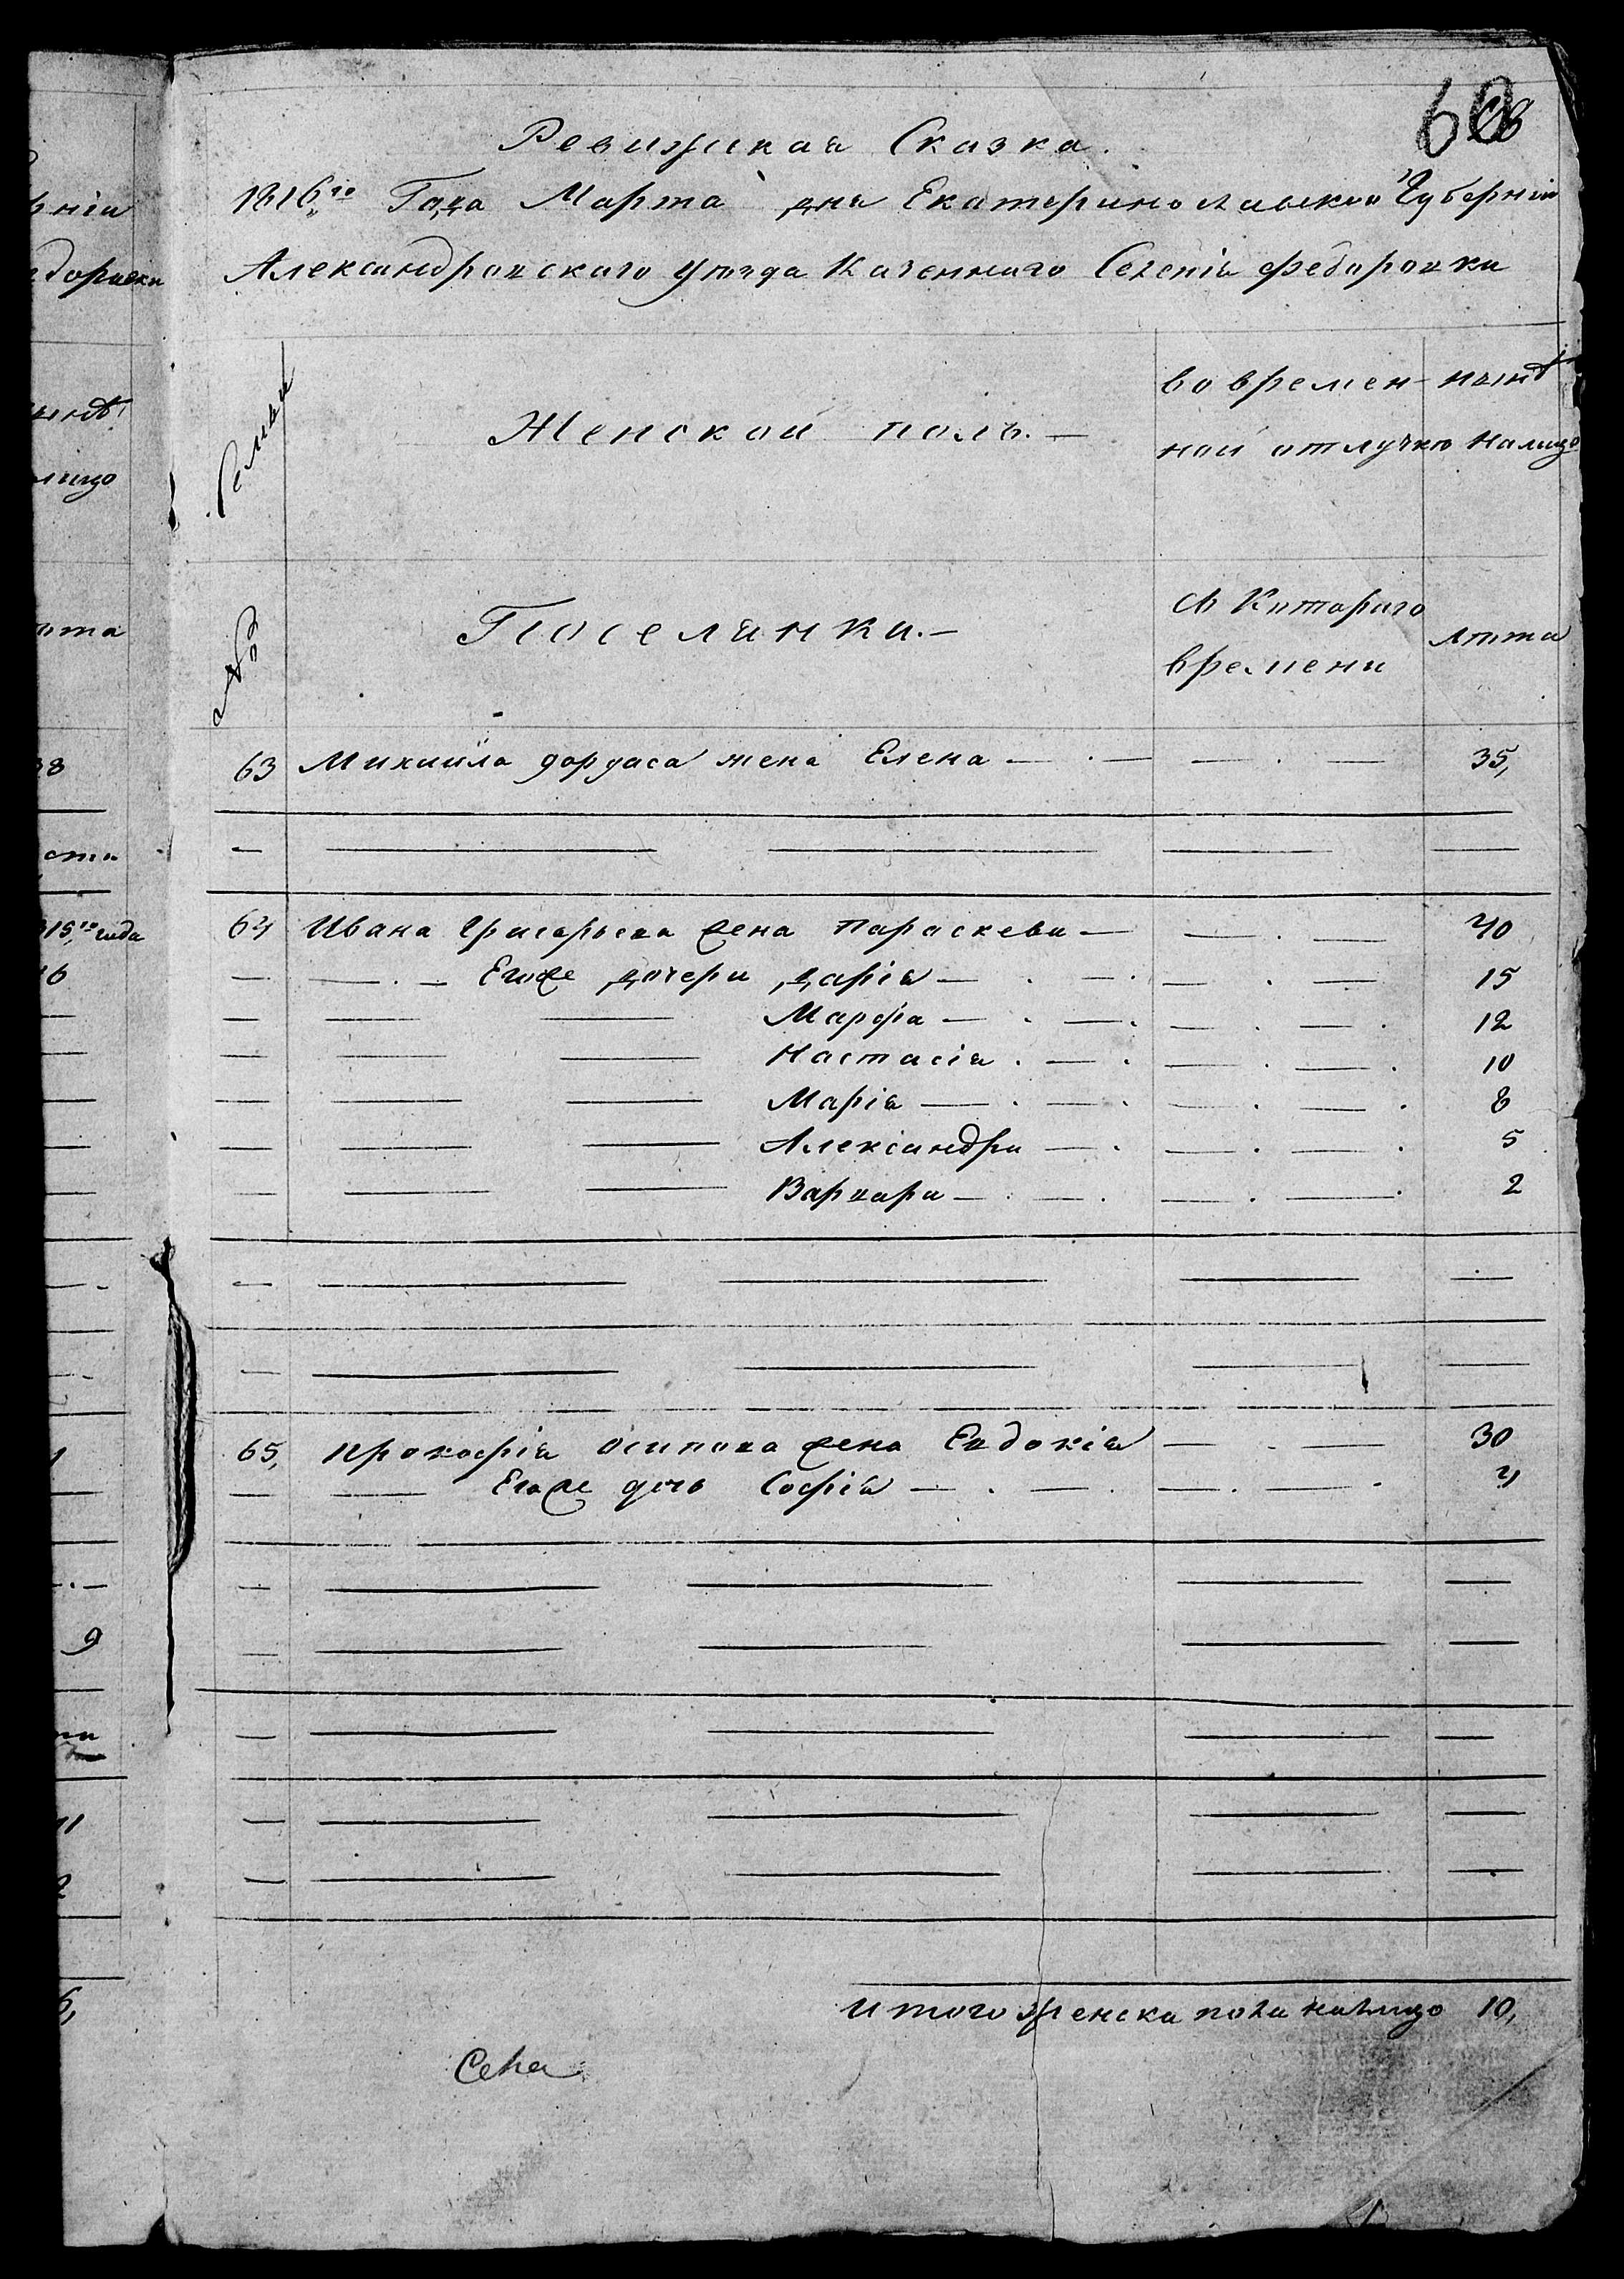 60
Ревижская Сказка.
1816го Года Марта дня Екатеринославской Губернии
Александровскаго уезда Казеннаго Селенія Федоровки
Семьи
Женской полъ.—
во времен-
ной отлучке
ныне
налицо
№
Поселянки.—
Съ Котораго
времени
лета
63 Михайла жена Елена — 35,
64 Ивана Григорьева жена Параскева — 40
Егоже дочери дарія — 15
Марфа — 12
Настасія 10
Марія — 8
Александра — 5
Варвара — 2
65, Прокофія Осипова жена Евдокія — 30
Егоже дочь Софія — 4
Итого женска пола налицо 10,
Села